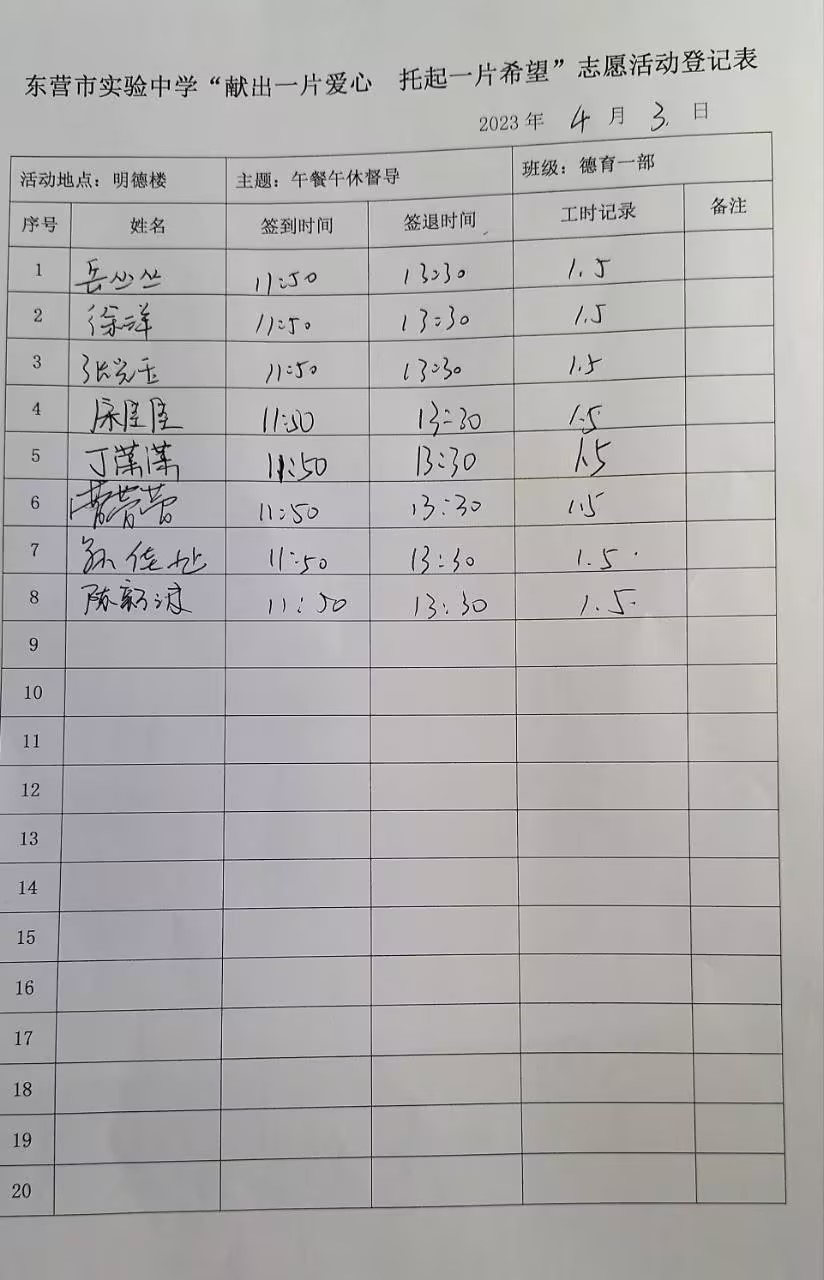 东营市实验中学“献出一片爱心 托起一片希望”志愿活动登记表
2023 年 4 月 3 日
活动地点：明德楼 主题：午餐午休督导 班级：德育一部
序号 姓名 签到时间 签退时间 工时记录 备注
1 岳丛丛 11:50 13:30 1.5
2 徐洋 11:50 13:30 1.5
3 张 玉 11:50 13:30 1.5
4 11:50 13:30 1.5
5 丁潇潇 11:50 13:30 1.5
6 11:50 13:30 1.5
7 孙佳 11:50 13:30 1.5
8 陈新波 11:50 13:30 1.5
9
10
11
12
13
14
15
16
17
18
19
20